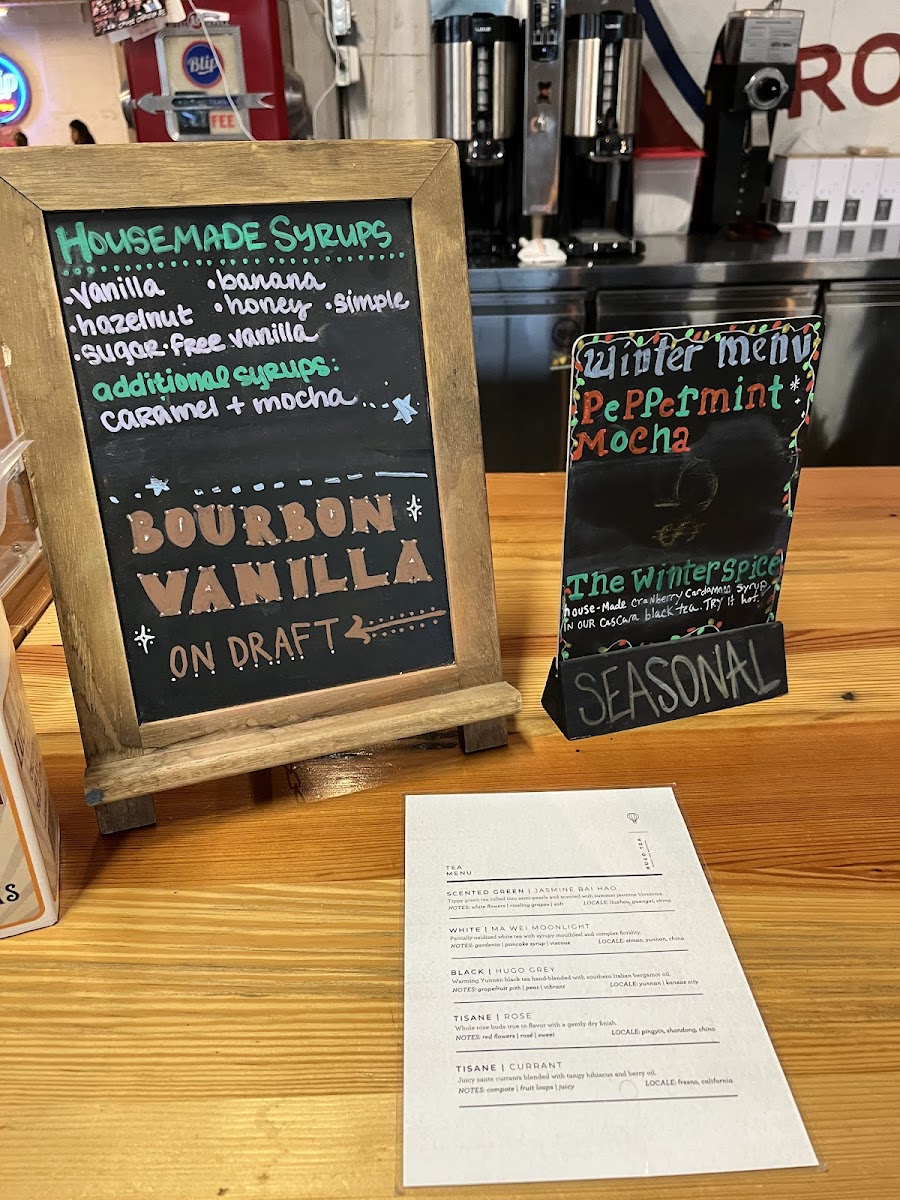 Blip
FEE
RO
HOUSEMADE SYRUPS
•vanilla •banana
•hazelnut •honey •simple
•sugar-free vanilla
additional syrups:
caramel + mocha
BOURBON
VANILLA
ON DRAFT
Winter menu
Peppermint
Mocha
The Winter Spice
House-Made Cranberry Cardamom Syrup
IN OUR Cascara black tea. TRY it hot.
SEASONAL
HUGO TEA
TEA
MENU
SCENTED GREEN | JASMINE BAI HAO
Tippy green tea rolled into semi-pearls and scented with summer jasmine blossoms.
NOTES: white flowers | riesling grapes | soft LOCALE: liuzhou, guangxi, china
WHITE | MA WEI MOONLIGHT
Partially-oxidized white tea with syrupy mouthfeel and complex florality.
NOTES: gardenia | pancake syrup | viscous LOCALE: simao, yunnan, china
BLACK | HUGO GREY
Warming Yunnan black tea hand-blended with southern Italian bergamot oil.
NOTES: grapefruit pith | peat | vibrant LOCALE: yunnan | kansas city
TISANE | ROSE
Whole rose buds true to flavor with a gently dry finish.
NOTES: red flowers | rosé | sweet LOCALE: pingyin, shandong, china
TISANE | CURRANT
Juicy zante currants blended with tangy hibiscus and berry oil.
NOTES: compote | fruit loops | juicy LOCALE: fresno, california